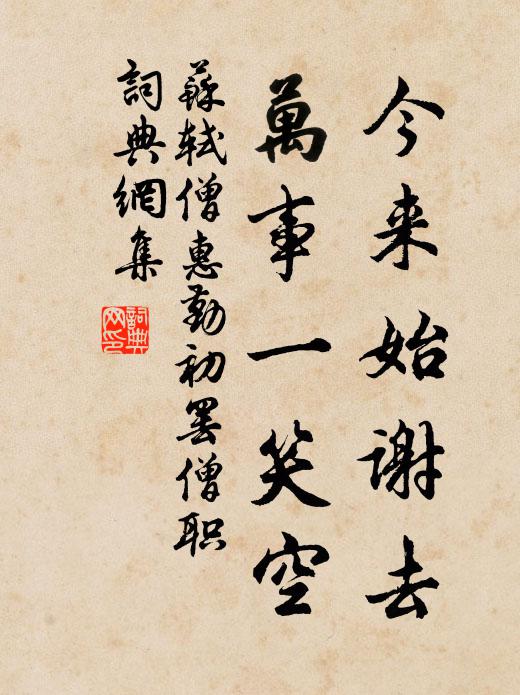 今来始謝去
萬事一笑空
蘇軾僧惠勤初罷僧职
詞典網集
詞典网印